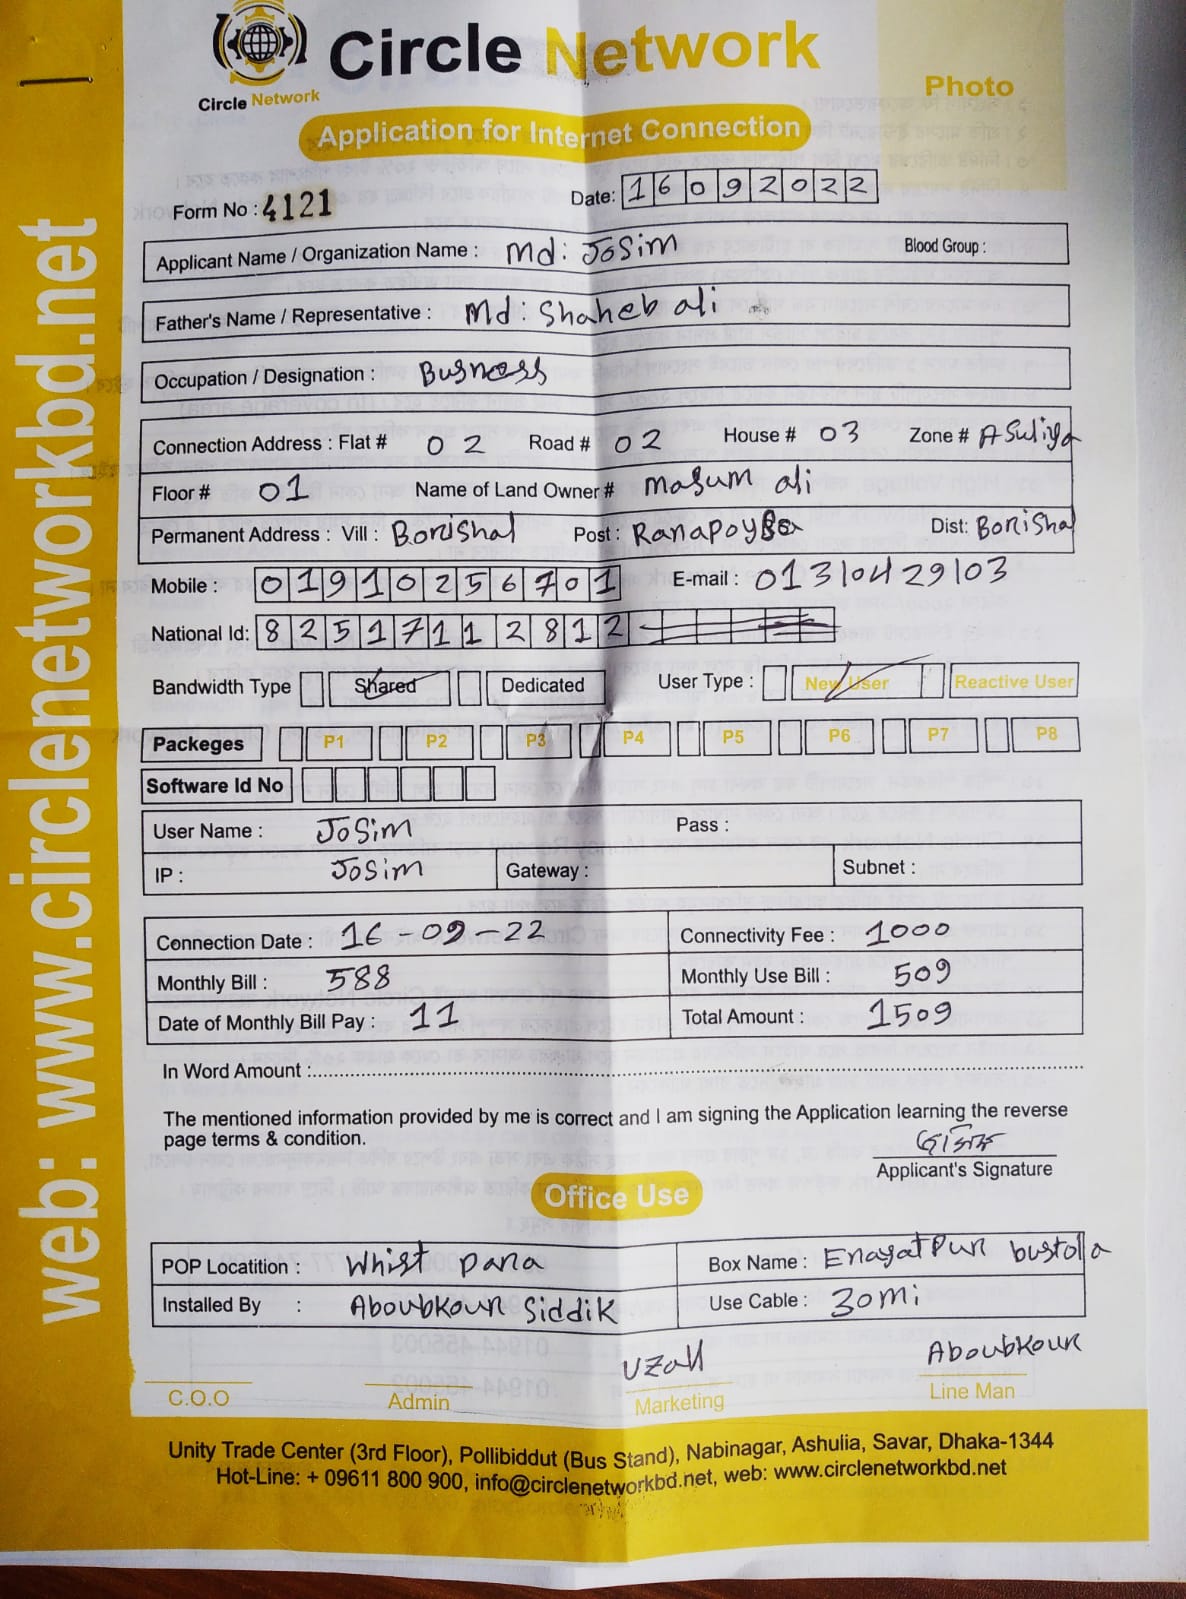 Circle Network
Circle Network
Photo
Application for Internet Connection
Form No : 4121
Date: 16092022
Applicant Name / Organization Name : Md: Josim Blood Group :
Father's Name / Representative : Md: Shaheb ali
Occupation / Designation : Busness
Connection Address : Flat # 02 Road # 02 House # 03 Zone # ASuliya
Floor # 01 Name of Land Owner # Masum ali
Permanent Address : Vill : Borishal Post : Ranapoysa Dist: Borishal
Mobile : 01910256701 E-mail : 01310429103
National Id: 82517112812
Bandwidth Type Shared Dedicated User Type : New User Reactive User
Packeges P1 P2 P3 P4 P5 P6 P7 P8
Software Id No
User Name : Josim Pass :
IP : Josim Gateway : Subnet :
Connection Date : 16-09-22 Connectivity Fee : 1000
Monthly Bill : 588 Monthly Use Bill : 509
Date of Monthly Bill Pay : 11 Total Amount : 1509
In Word Amount :
The mentioned information provided by me is correct and I am signing the Application learning the reverse
page terms & condition.
Applicant's Signature
Office Use
POP Locatition : Whist para Box Name : Enayatpur bustola
Installed By : Aboubkour Siddik Use Cable : 30mi
Aboubkour
C.O.O Admin Marketing Line Man
Unity Trade Center (3rd Floor), Pollibiddut (Bus Stand), Nabinagar, Ashulia, Savar, Dhaka-1344
Hot-Line: + 09611 800 900, info@circlenetworkbd.net, web: www.circlenetworkbd.net
web: www.circlenetworkbd.net